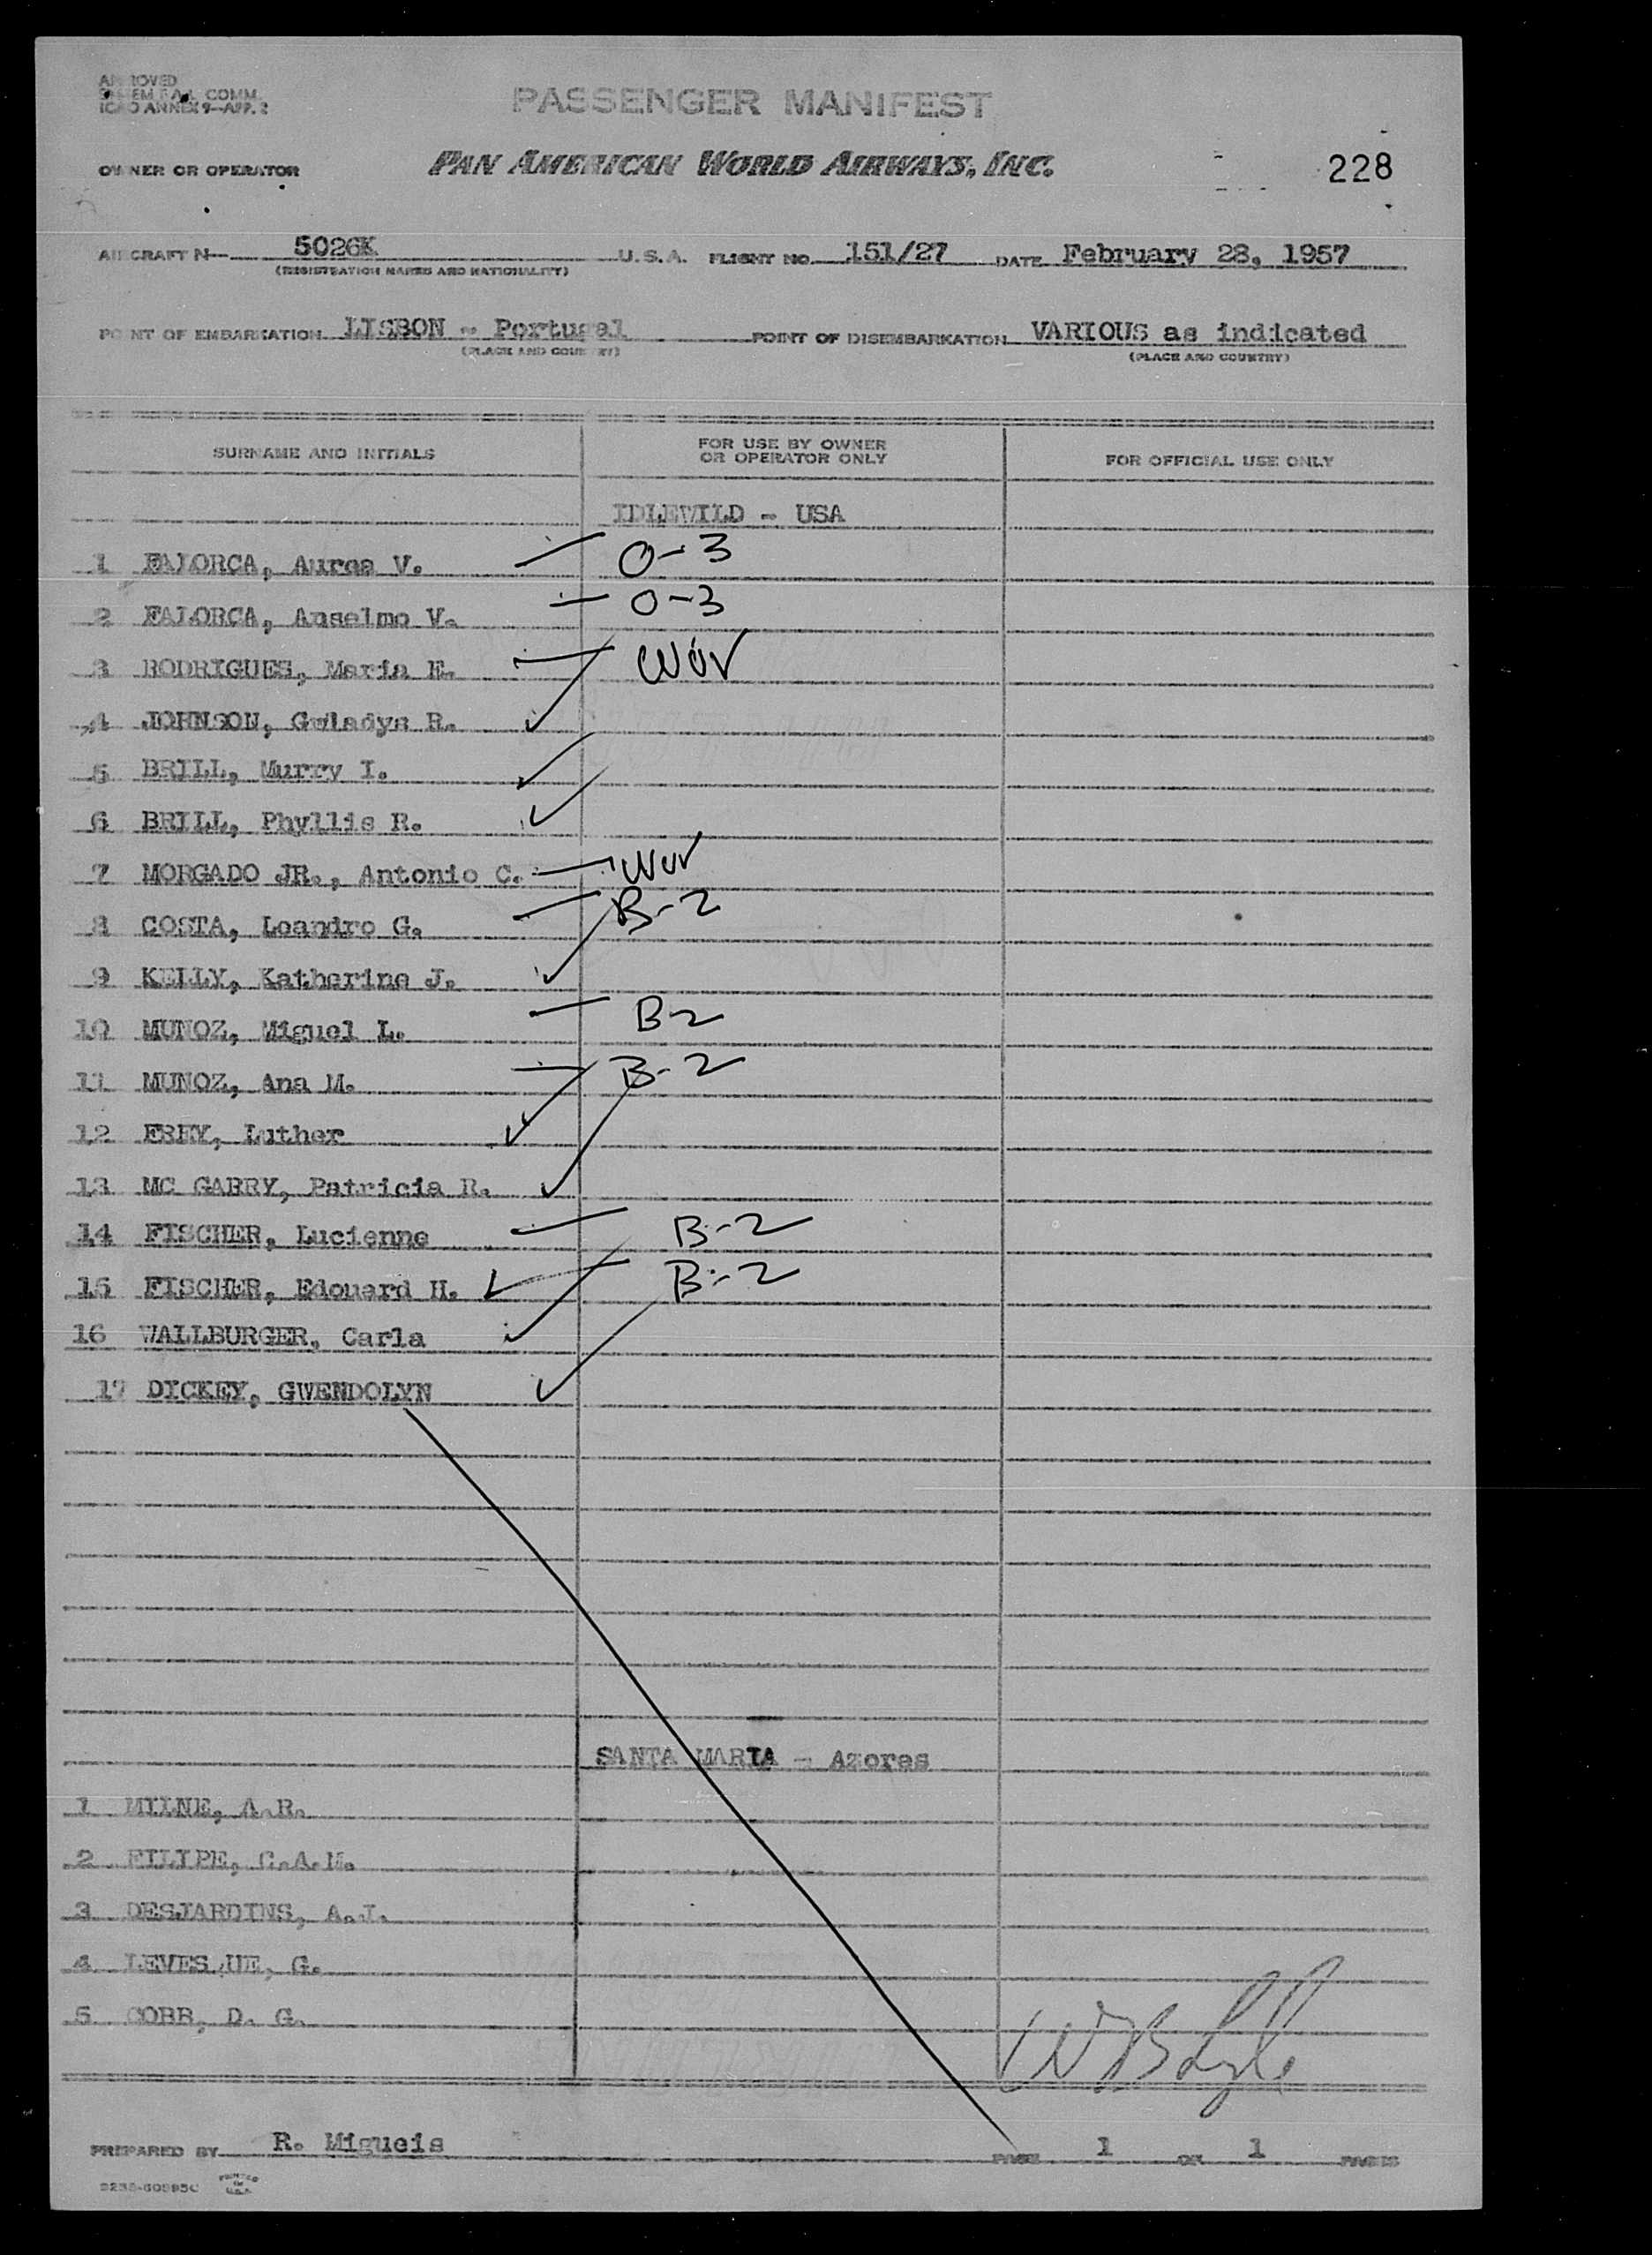 APPROVED
SYSTEM FAL COMM.
ICAO ANNEX 9—APP. 2
PASSENGER MANIFEST
OWNER OR OPERATOR PAN AMERICAN WORLD AIRWAYS, INC. 228
AIRCRAFT N— 5026K U.S.A. FLIGHT NO. 151/27 DATE February 28, 1957
(REGISTRATION MARKS AND NATIONALITY)
POINT OF EMBARKATION LISBON - Portugal POINT OF DISEMBARKATION VARIOUS as indicated
(PLACE AND COUNTRY) (PLACE AND COUNTRY)
SURNAME AND INITIALS FOR USE BY OWNER OR OPERATOR ONLY FOR OFFICIAL USE ONLY
IDLEWILD - USA
1 FALORCA, Aurea V. — O-3
2 FALORCA, Anselmo V. — O-3
3 RODRIGUES, Maria E. —
4 JOHNSON, Gwladys R. ✓
5 BRILL, Murry I. ✓
6 BRILL, Phyllis R. ✓
7 MORGADO JR., Antonio C. —
8 COSTA, Leandro G. — B-2
9 KELLY, Katherine J. ✓
10 MUNOZ, Miguel L. — B-2
11 MUNOZ, Ana M. — B-2
12 FREY, Luther ✓
13 MC GARRY, Patricia R. ✓
14 FISCHER, Lucienne — B-2
15 FISCHER, Edouard H. ✓ B-2
16 WALLBURGER, Carla ✓
17 DICKEY, GWENDOLYN ✓
SANTA MARIA - Azores
1 MILNE, A.R.
2 FILIPE, C.A.
3 DESJARDINS, A.J.
4 LEVES UE, G.
5 COBB, D. G.
PREPARED BY R. Migueis PAGE 1 OF 1 PAGES
PRINTED IN U.S.A.